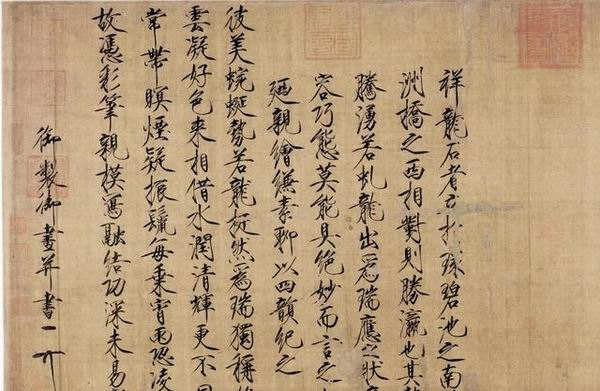 祥龍石者立於環碧池之南
洲橋之西相對則勝瀛也其
騰湧若虬龍出爲瑞應之狀
容巧態莫能具絕妙而言之
廼親繪縑素聊以四韻紀之
彼美蜿蜒勢若龍挺然爲瑞獨稱
雲凝好色來相借水潤清輝更不
常帶瞑煙疑振鬣每乘宵雨恐凌
故憑彩筆親模寫融結功深未易
御製御畫并書